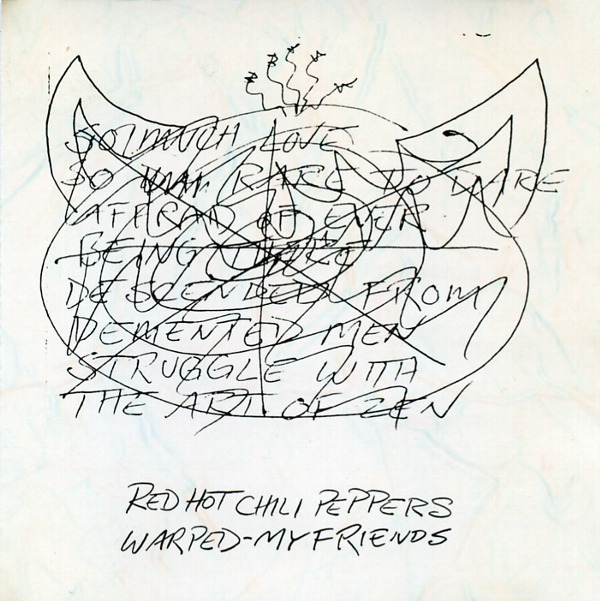 SO MUCH LOVE
SO RARE TO DARE
AFFRAD OF EVER
BEING THERE
DESCENDED FROM
DEMENTED MEN
STRUGGLE WITH
THE ART OF ZEN
RED HOT CHILI PEPPERS
WARPED-MY FRIENDS